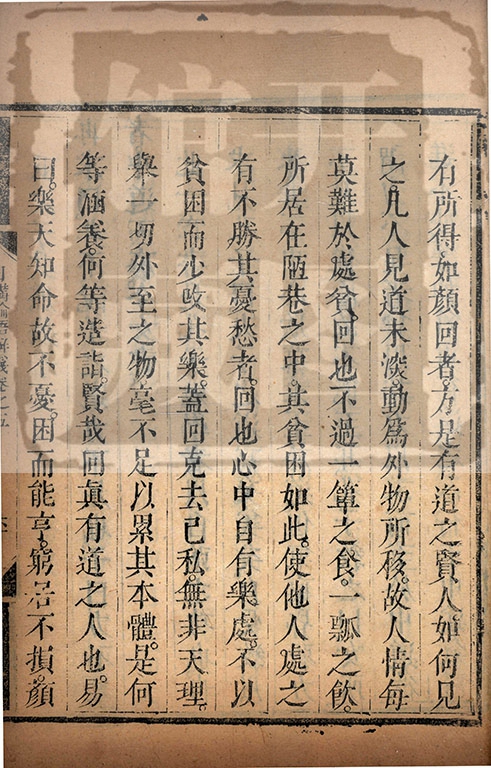 有所得。如顏回者。方是有道之賢人。如何見
之。凡人見道未深。動爲外物所移。故人情每
莫難於處貧。回也不過一簞之食。一瓢之飲。
所居在陋巷之中。其貧困如此。使他人處之
有不勝其憂愁者。回也心中自有樂處。不以
貧困而少改其樂。蓋回克去己私。無非天理。
舉一切外至之物毫不足以累其本體。是何
等涵養。何等造詣。賢哉回眞有道之人也。易
曰。樂天知命故不憂。困而能亨。窮居不損。顏